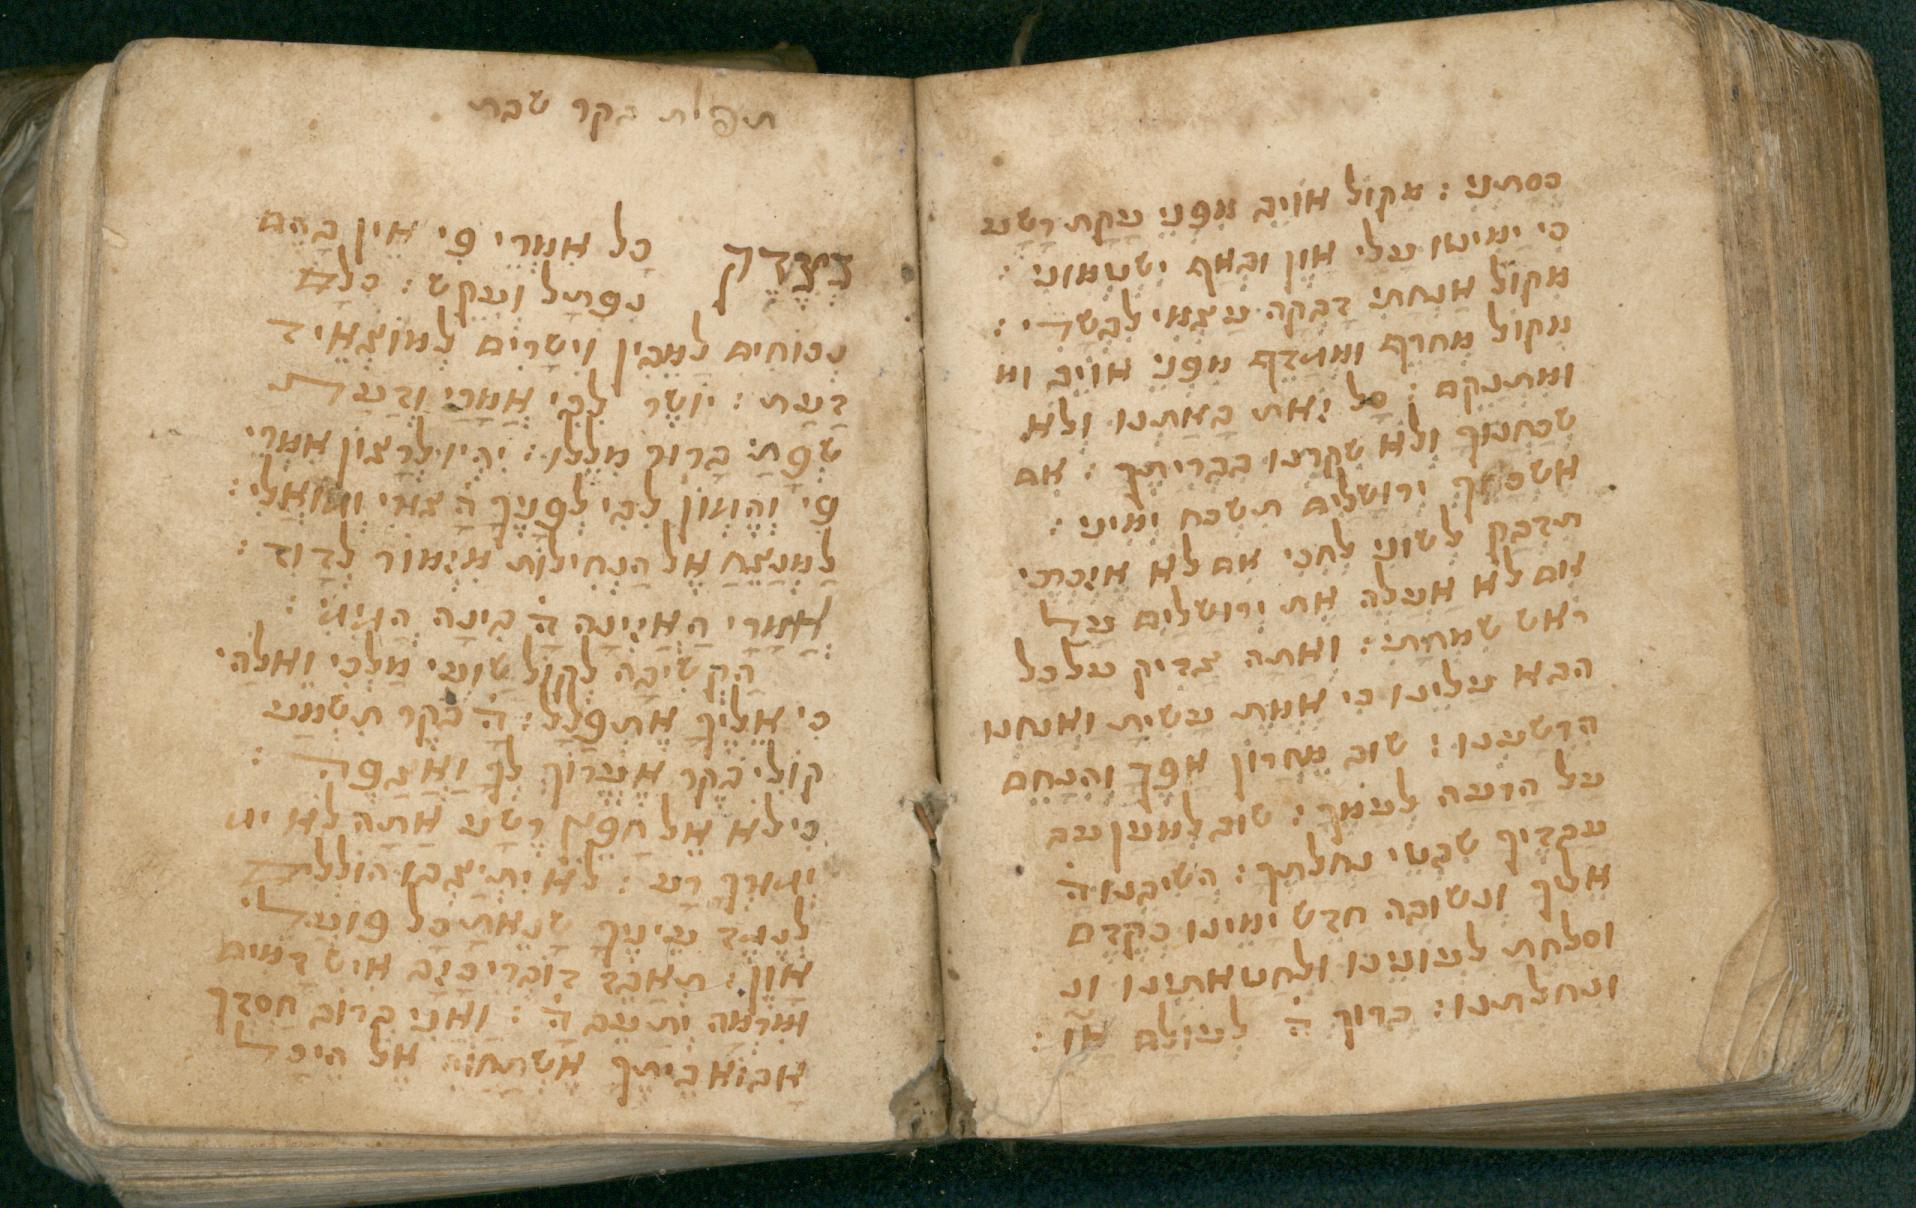 כסתני : מקול אויב מפני עקת רשע
כי ימיטו עלי און ובאף ישטמוני :
מקול אנחתי דבקה עצמי לבשרי :
מקול מחרף ומגדף מפני אויב ומ
ומתנקם : כל זאת באתנו ולא
שכחנוך ולא שקרנו בבריתך : אם
אשכחך ירושלים תשכח ימיני :
תדבק לשוני לחכי אם לא אזכרכי
אם לא אעלה את ירושלים על
ראש שמחתי : ואתה צדיק על כל
הבא עלינו כי אמת עשית ואנחנו
הרשענו : שוב מחרון אפך והנחם
על הרעה לעמך : שוב למען עב
עבדיך שבטי נחלתך : השיבנו ה
אליך ונשובה חדש ימינו כקדם
וסלחת לעונינו ולחטאתינו ונ
ונחלתנו : ברוך ה לעולם או :
תפלת בקר שבת
בצדק כל אמרי פי אין בהם
נפתל ועקש : כלם
נכוחים למבין וישרים למוצאי ד
דעת : יושר לבי אמרי ודעת
שפתי ברור מללו : יהיו לרצון אמרי
פי והגיון לבי לפניך ה צורי וגואלי :
למנצח אל הנחילות מזמור לדוד :
אמרי האזינה ה בינה הגיגי :
הקשיבה לקול שועי מלכי ואלהי
כי אליך אתפלל : ה בקר תשמע
קולי בקר אערוך לך ואצפה :
כי לא אל חפץ רשע אתה לא יג
יגורך רע : לא יתיצבו הוללים
לנגד עיניך שנאת כל פועלי
און : תאבד דוברי כזב איש דמים
ומרמה יתעב ה : ואני ברוב חסדך
אבוא ביתך אשתחוה אל היכל